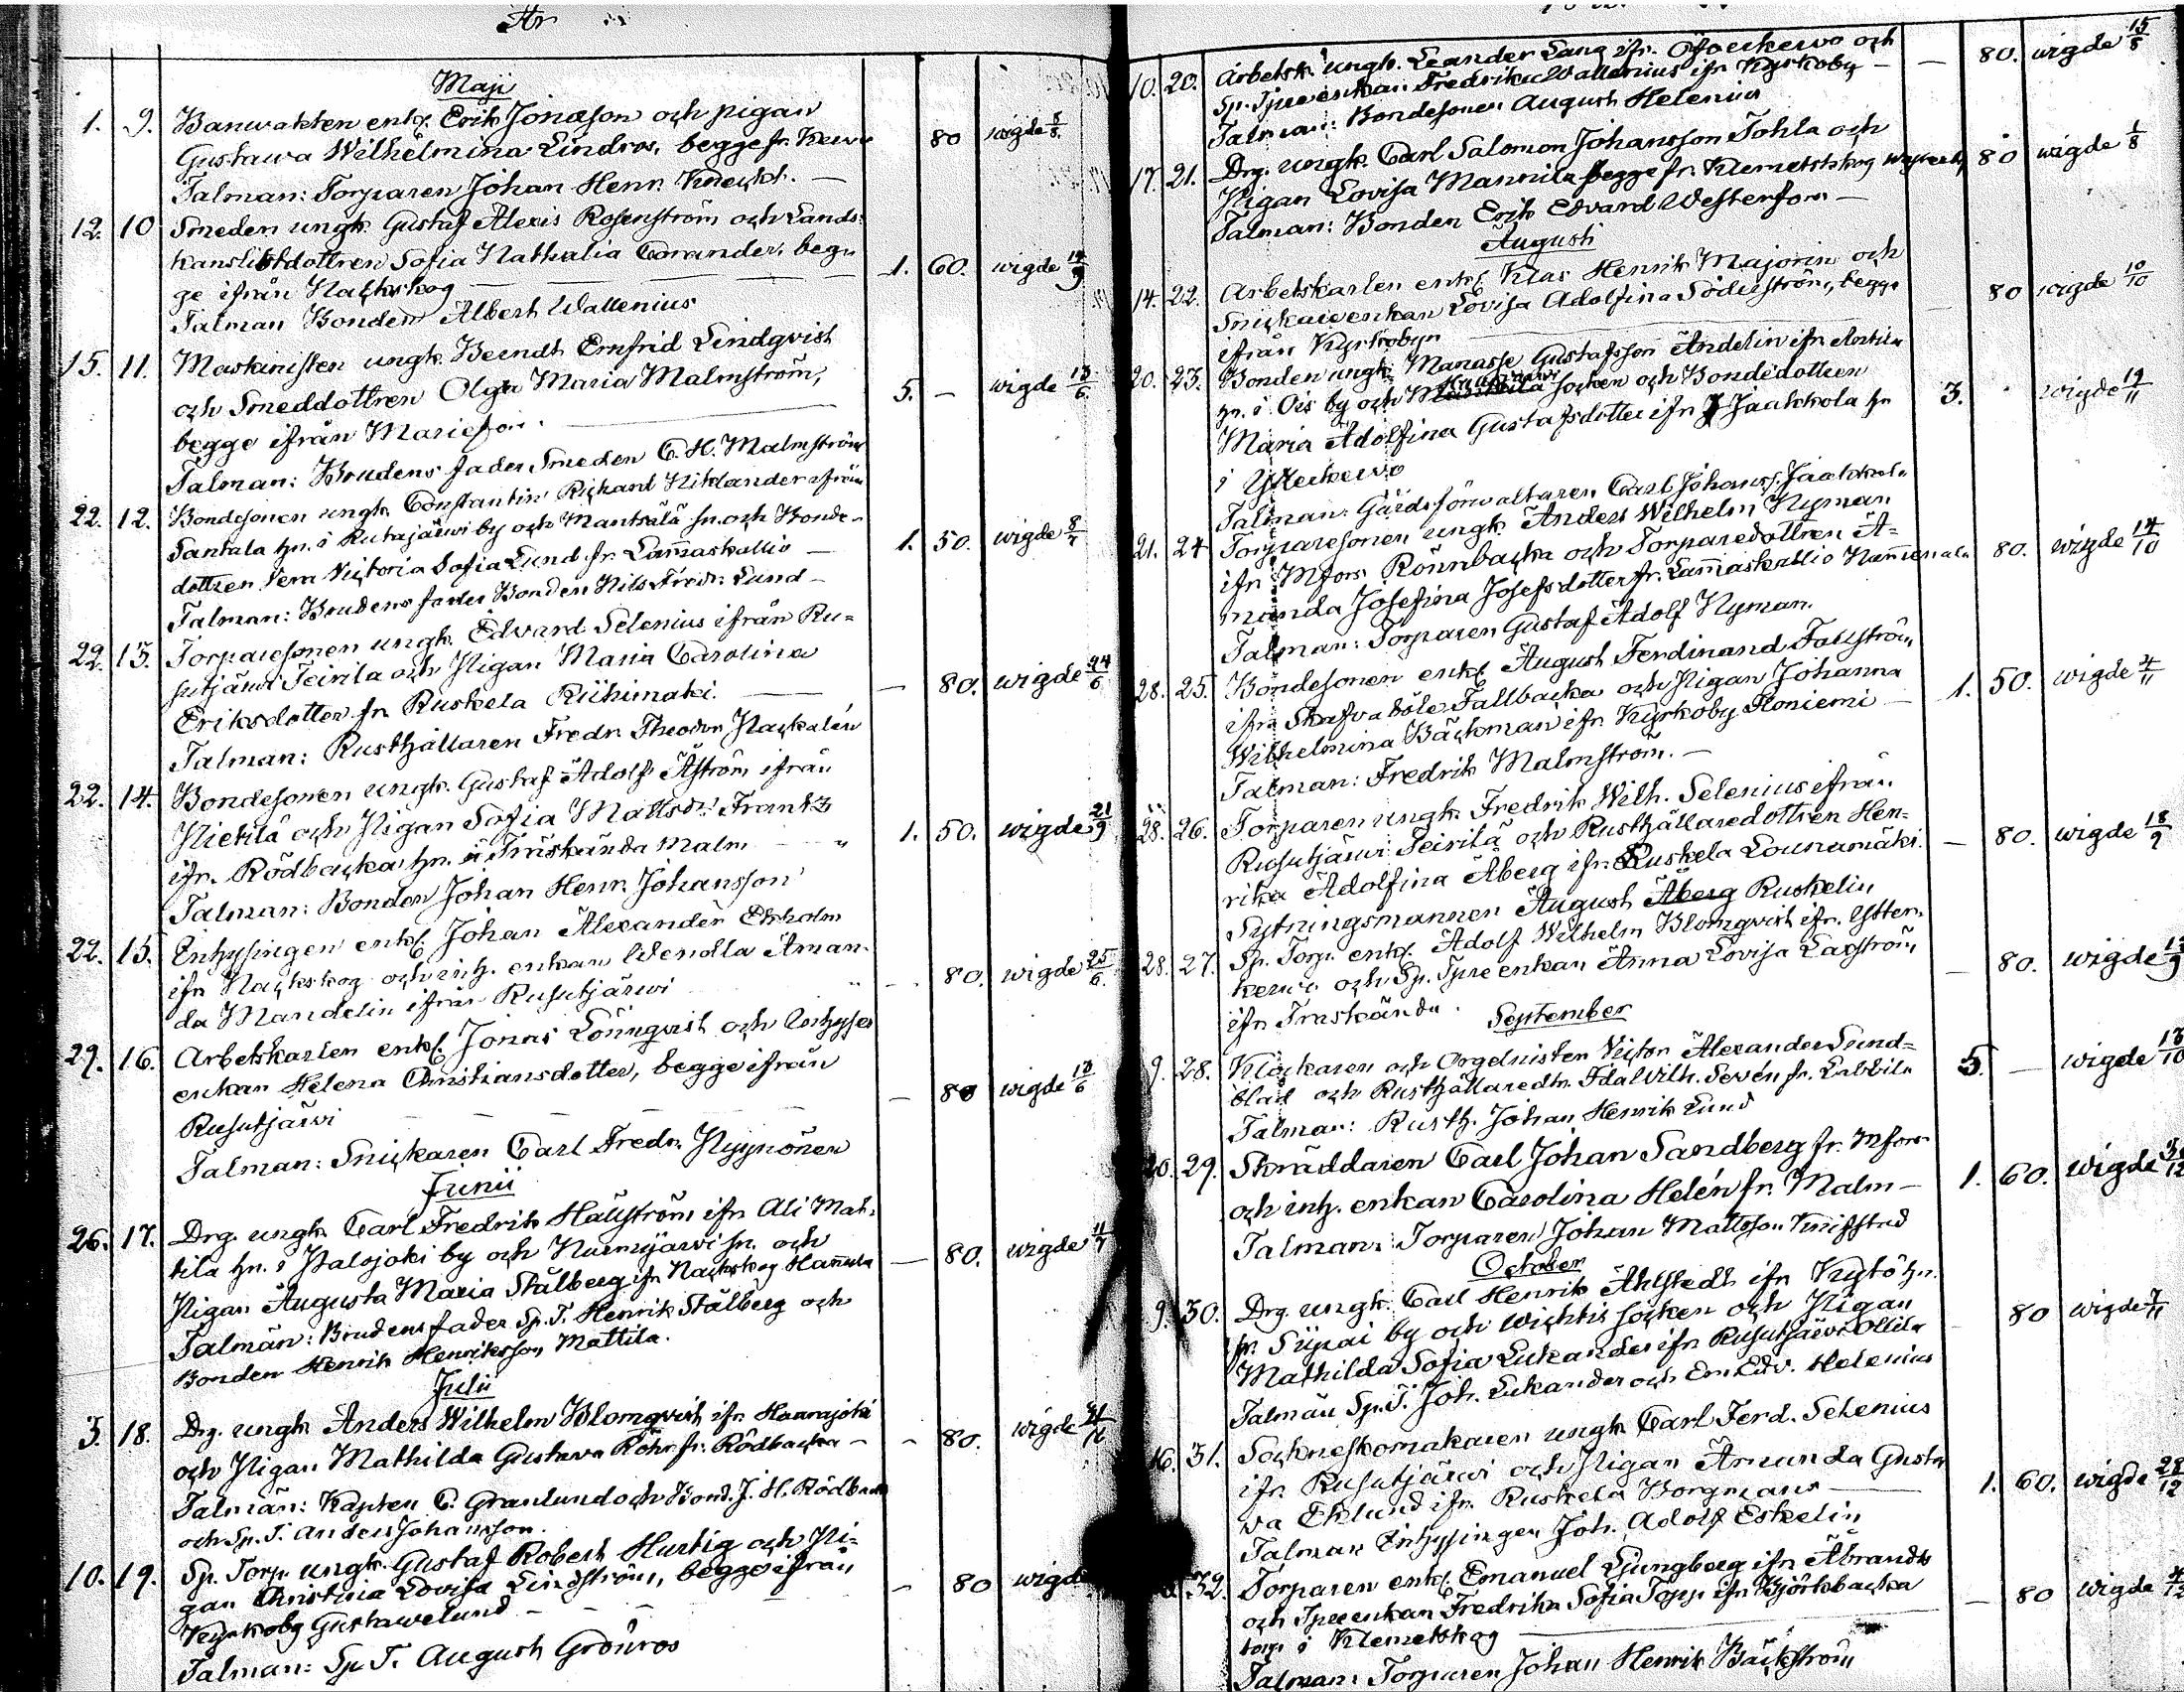 År
Maji
1. 9. Banwakten enkl. Erik Jonasson och pigan
Gustawa Wilhelmina Lindros, begge fr. 80 wigde 8/8
Talman: Torparen Johan Henr. Knecht. —
12. 10 Smeden ungk. Gustaf Alexis Rosenström och Lands-
kanslistdottren Sofia Nathalia Corander, beg-
ge ifrån Nackskog — 1. 60. wigde 14/9
Talman Bonden Albert Wallenius
15. 11. Maskinisten ungk. Berndt Ernfrid Lindqvist
och Smeddottren Olga Maria Malmström, 5. — wigde 13/6
begge ifrån Mariefors.
Talman: Brudens fader Smeden C. H. Malmström
22. 12. Bondesonen ungk. Constantin Richard Niklander ifrån
Santala hn. i Rutajärwi by och Mäntsälä sn. och Bonde- 1. 50. wigde 8/7
dottren Vera Victoria Sofia Lund fr. Lam̄askallio —
Talman: Brudens fader Bonden Nils Fredr. Lund —
22. 13. Torparesonen ungk. Edvard Selenius ifrån Ru-
sutjärwi Teirilä och Pigan Maria Carolina
Eriksdotter fr. Ruskela Riihimäki. — 80. wigde 24/6
Talman: Rusthållaren Fredr. Theodor Nackalén
22. 14. Bondesonen ungk. Gustaf Adolf Åström ifrån
Pietilä och Pigan Sofia Mattsdr. Frantz
ifr. Rödbacka hn. i Träskända Malm 1. 50. wigde 21/9
Talman: Bonden Johan Henr. Johansson
22. 15. Inhysingen enkl. Johan Alexander Ekholm
ifr. Nackskog och inh. enkan Wendla Aman-
da Mandelin ifrån Rusutjärwi — 80. wigde 25/6
29. 16. Arbetskarlen enkl. Jonas Lönnqvist och Inhyses
enkan Helena Christiansdotter, begge ifrån
Rusutjärwi — 80 wigde 13/6
Talman: Snickaren Carl Fredr. Nyynönen
Junii
26. 17. Drg. ungk. Carl Fredrik Hällström ifr. Ali Mat-
tila hn. i Palojoki by och Nurmijärwi sn. och
Pigan Augusta Maria Stålberg ifr. Nackskog Hannula — 80. wigde 11/7
Talmän: Brudens fader Sp. T. Henrik Stålberg och
Bonden Henrik Henriksson Mattila.
Julii
3. 18. Drg. ungk. Anders Wilhelm Blomqvist ifr. Haarajoki
och Pigan Mathilda Gustava Röhr fr. Rödbacka — 80. wigde
Talmän: Kapten C. Granlund och Bond. J. H. Rödbacka
och Sp. T. Anders Johansson.
10. 19. Sp. Torp. ungk. Gustaf Robert Hurtig och Pi-
gan Christina Lovisa Lindström, begge ifrån — 80 wigde
Kyrkoby Gustawelund —
Talman: Sp. T. August Grönroos
10. 20. Arbetsk. ungk. Leander Lang ifr. och — 80. wigde 15/8
Sp. Tprenkan Fredrika Wallenius ifr. Kyrkoby —
Talman: Bondesonen August Helenius
17. 21. Drg. ungk. Carl Salomon Johansson Tohla och
Pigan Lovisa Mannila begge fr. Klemetskog 80 wigde 1/8
Talman: Bonden Erik Edvard Westerfors —
Augusti
14. 22. Arbetskarlen enkl. Klas Henrik Majorin och
Snickareenkan Lovisa Adolfina Söderström, begge 80 wigde 10/10
ifrån Kyrkobyn
20. 23. Bonden ungk. Manasse Gustafsson Andelin ifr.
hn. i Ois by och socken och Bondedottren
Maria Adolfina Gustafsdotter ifr. Jaakkola hn 3. wigde 19/11
i Ytterkervo
Talman: Gårdsförvaltaren Carl Johanss. Jaakkola
21. 24 Torparesonen ungk. Anders Wilhelm Nyman
ifr. Mfors Rönnbacka och Torparedottren A-
manda Josefina Josefsdotter fr. Lam̄askallio 80. wigde 14/10
Talman: Torparen Gustaf Adolf Nyman.
28. 25. Bondesonen enkl. August Ferdinand Fallström
ifr. Skafvaböle Fallbacka och Pigan Johanna
Wilhelmina Bäckman ifr. Kyrkoby Honiemi — 1. 50. wigde 4/11
Talman: Fredrik Malmström. —
28. 26. Torparen ungk. Fredrik Wilh. Selenius ifrån
Rusutjärwi Teirilä och Rusthållaredottren Hen-
rika Adolfina Åberg ifr. Ruskela Lounamäki. — 80. wigde 18/9
Sytningsmannen August Åberg Ruskelin
28. 27. Sp. Torp. enkl. Adolf Wilhelm Blomqvist ifr. Ytter-
kerwo och Sp. Tprenkan Anna Lovisa Laxström — 80. wigde 13/9
ifr. Träskända.
September
9. 28. Klockaren och Orgelnisten Victor Alexander Sund-
blad och Rusthållaredtr. Ida Wilh. Sevén fr. Labbila 5. — wigde 13/10
Talman: Rusth. Johan Henrik Lund
20. 29. Skräddaren Carl Johan Sandberg fr. Mfors
och inh. enkan Carolina Helén fr. Malm — 1. 60. wigde
Talman: Torparen Johan Mattsson Kniffsted
October
9. 30. Drg. ungk. Carl Henrik Åhlstedt ifr. Kytö hn.
fr. Siipai by och Wichtis socken och Pigan
Mathilda Sofia Lukander ifr. Rusutjärwi Ollila 80 wigde 7/11
Talmän Sp. T. Joh. Lukander och Em. Edv. Helenius
16. 31. Sockneskomakaren ungk. Carl Ferd. Selenius
ifr. Rusutjärwi och Pigan Amanda Gusta-
va Eklund ifr. Ruskela Borgmans — 1. 60. wigde 28/12
Talman Inhysingen Joh. Adolf Eskelin
32. Torparen enkl. Emanuel Ljungberg ifr. Åbrandts
och Tprenkan Fredrika Sofia Topp ifr. Björkbacka — 80 wigde
torp i Klemetskog
Talman: Torparen Johan Henrik Bäckström